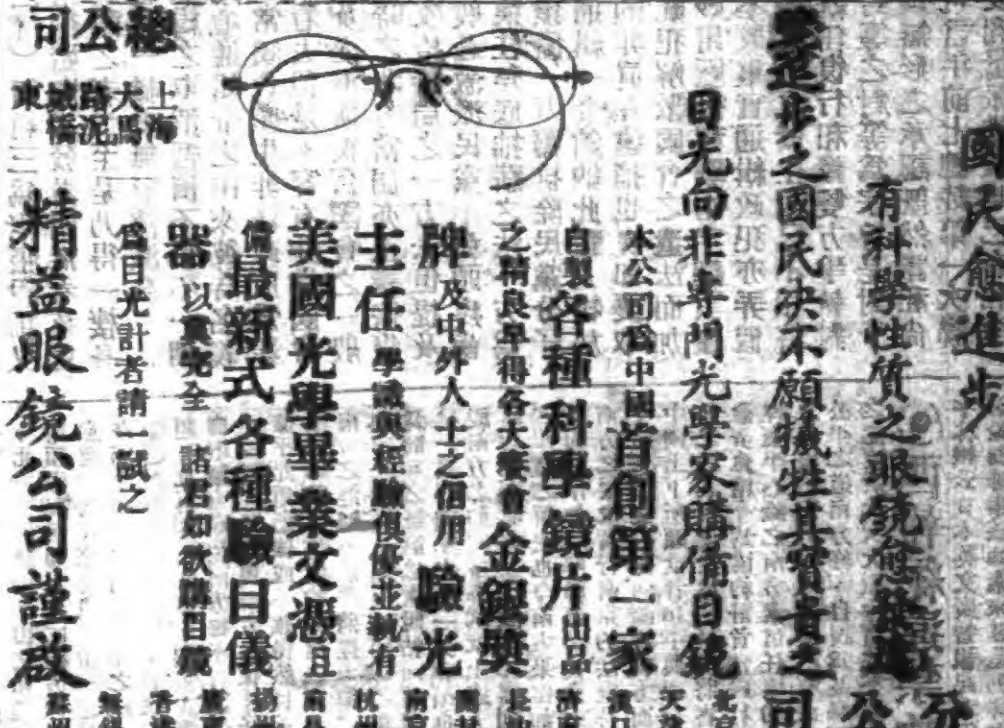 國民愈進步
有科學性質之眼鏡愈發達
進步之國民決不願犧牲其寶貴之
目光向非專門光學家購備目鏡
本公司爲中國首創第一家
自製各種科學鏡片出品
之精良早得各大賽會金銀獎
牌及中外人士之信用 驗光
主任 學識與經驗俱優並執有
美國光學畢業文憑且
備最新式各種驗目儀
器以冀完全 諸君如欲購目鏡
爲目光計者請一試之
精益眼鏡公司謹啟
總公司
上海
大馬
路泥
城橋
東
分
公
司
北京
天津
漢口
濟南
長沙
開封
南京
杭州
南昌
揚州
香港
無錫
蘇州